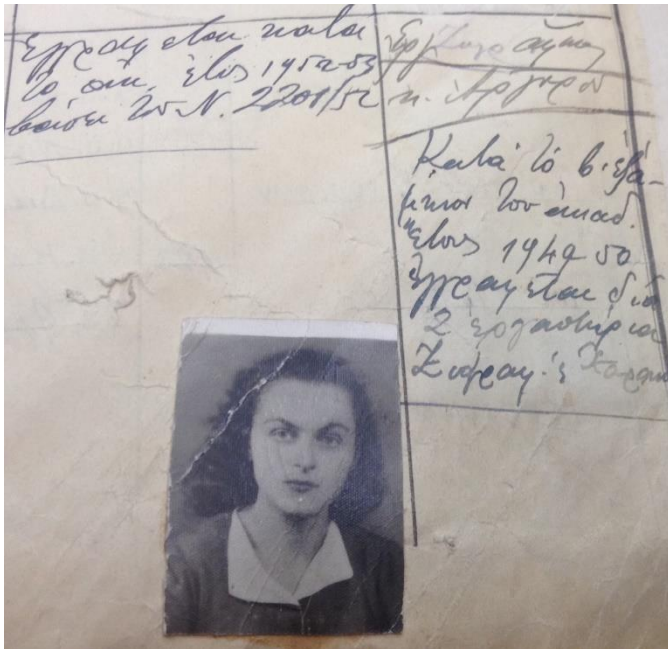 Εγγράφεται κατὰ
τὸ ἀκ. ἔτος 1952-53
βάσει τοῦ Ν. 2201/52
Ἐργ. Ζωγρ.
κ. Ἀργυρὸ
Κατὰ τὸ β' ἑξά-
μηνον τοῦ ἀκαδ.
ἔτους 1949-50
ἐγγράφεται διὰ
2 ἐργαστήρια
Ζωγραφ. & Χαρακ